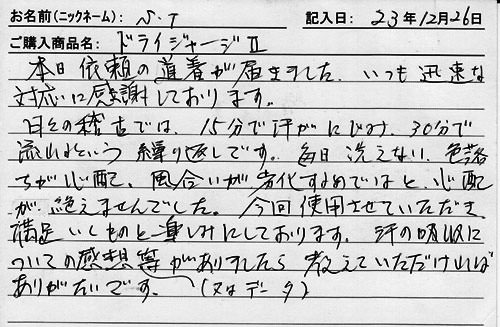 お名前(ニックネーム): N.T 記入日: 23年12月26日
ご購入商品名: ドライジャージⅡ
本日依頼の道着が届きました. いつも迅速な
対応に感謝しております。
日々の稽古では、15分で汗がにじみ、30分で
流れるという繰り返しです。毎日洗えない、色落
ちが心配、風合いが劣化するのではと、心配
が絶えませんでした。今回使用させていただき
満足いくものと楽しみにしております。汗の吸収に
ついての感想等がありましたら教えていただければ
ありがたいです。 (又はデータ)